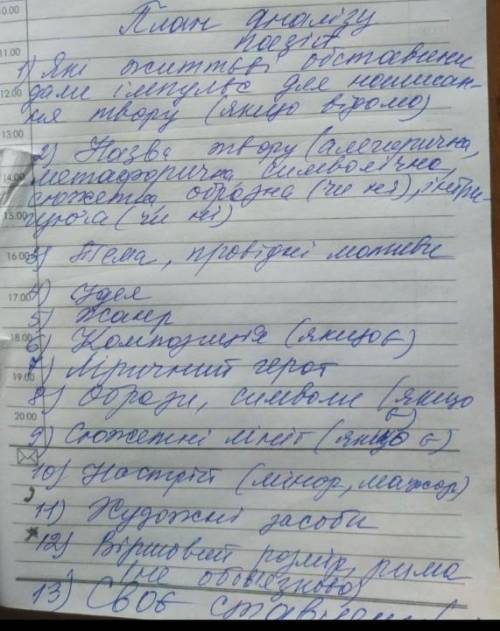 План аналізу
поезій
10.00
11.00
1) Які життєві обставини
12.00
дали імпульс для написан-
ня твору (якщо відомо)
13.00
2) Назва твору (алегорична,
14.00
метафорична символічна,
сюжетна, образна (чи ні), інтри-
15.00
гуюча (чи ні)
16.00
3) Тема, провідні мотиви
17.00
4) Ідея
5) Жанр
18.00
6) Композиція (якщо є)
7) Ліричний герой
19.00
8) Образи, символи (якщо
є)
20.00
9) Сюжетні лінії (якщо є)
10) Настрій (мінор, мажор)
11) Художні засоби
12) Віршовий розмір, рима
(не обов'язково)
13) Своє